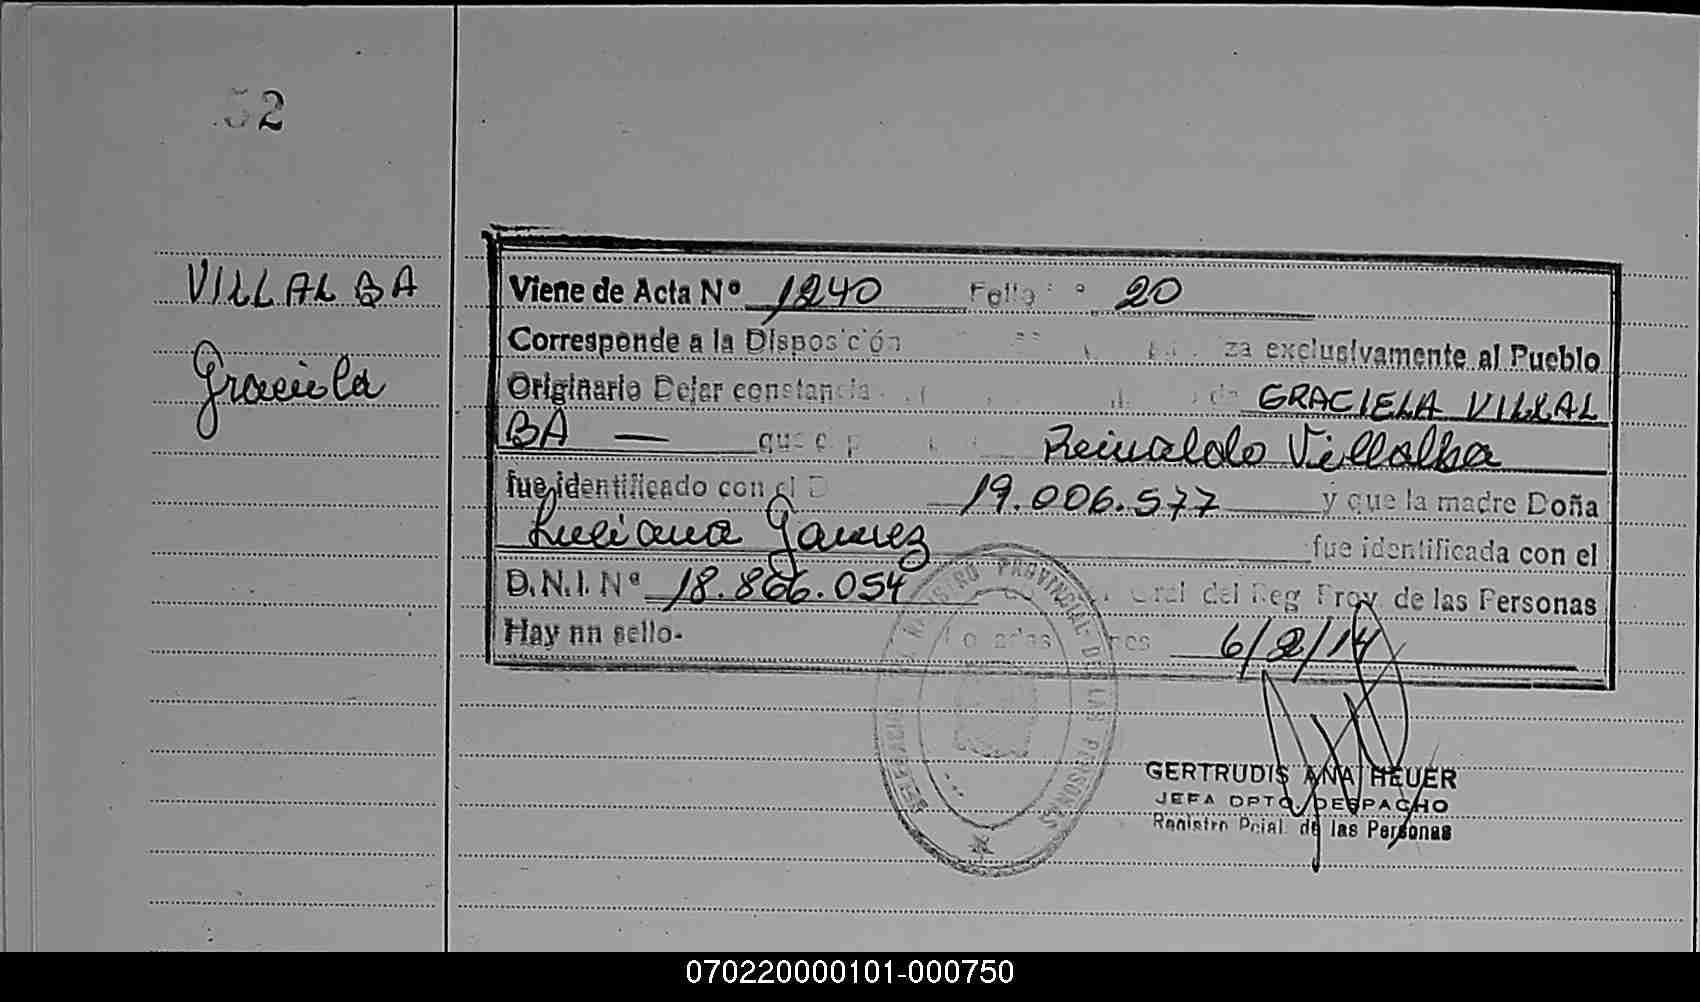 52
VILLALBA
Graciela
Viene de Acta Nº 1240 Folio Nº 20
Corresponde a la Disposición za exclusivamente al Pueblo
Originario Dejar constancia de GRACIELA VILLAL
BA — que el p Reinaldo Villalba
fue identificado con el D 19.006.577 y que la madre Doña
Luciana fue identificada con el
D.N.I. Nº 18.866.054 Gral del Reg Prov de las Personas
Hay nn sello- 6/2/14
REGISTRO PROVINCIAL DE LAS PERSONAS
GERTRUDIS ANA HEUER
JEFA DPTO DESPACHO
Registro Pcial. de las Personas
070220000101-000750